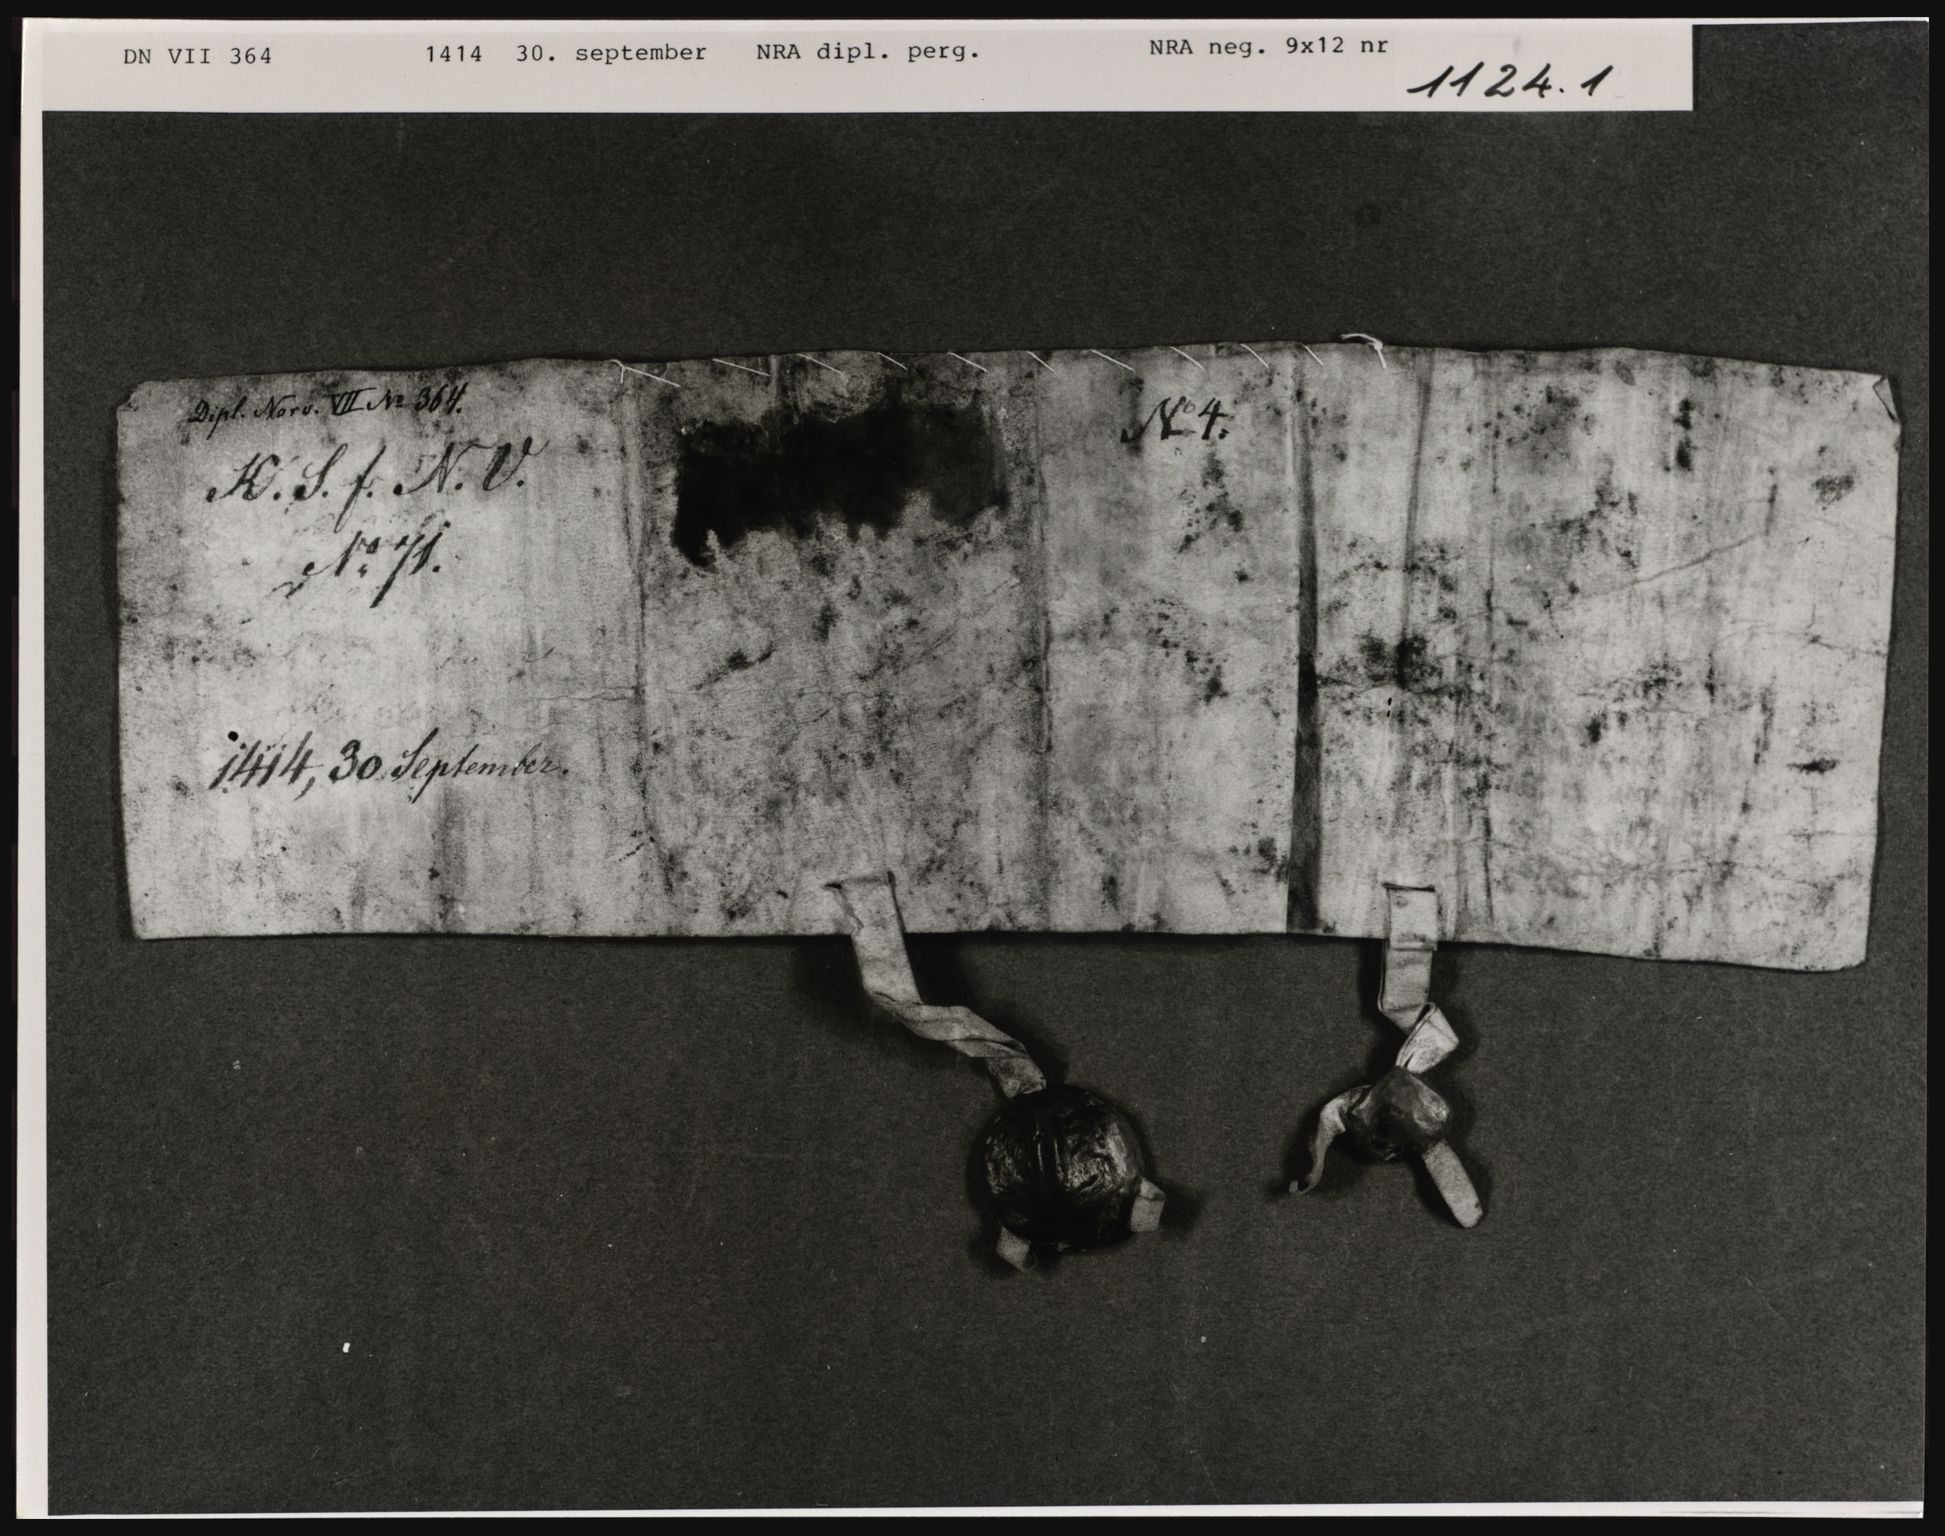 DN VII 364 1414 30. september NRA dipl. perg. NRA neg. 9x12 nr
1124.1
Dipl. Norv. VII No 364.
No 4.
K. S. f. N. V.
No 71.
1414, 30 September.